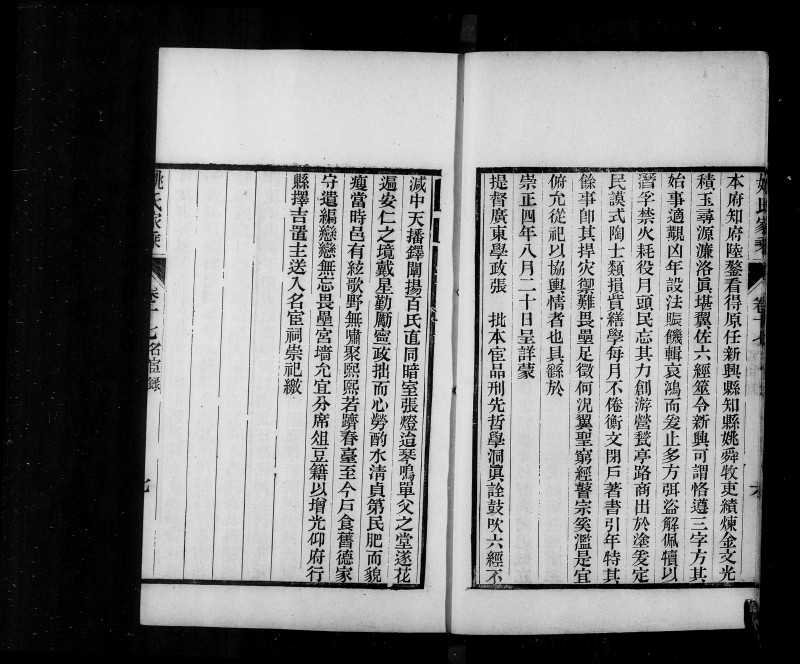 本府知府陸鏊看得原任新興縣知縣姚舜牧吏績煉金文光
積玉尋源濂洛眞堪翼佐六經筮令新興可謂恪遵三字方其
始事適覯凶年設法賑饑輯哀鴻而爰止多方弭盜解佩犢以
潛孚禁火耗役月頭民忘其力創游營甃亭路商出於塗爰定
民謨式陶士類損貲繕學每月不倦衡文閉戶著書引年特其
餘事卽其捍灾禦難畏壘足徵何況翼聖窮經瞽宗奚濫是宜
俯允從祀以協輿情者也具繇於
崇正四年八月二十日呈詳蒙
提督廣東學政張 批本宦品刑先哲學洞眞詮鼓吹六經不
減中天播鐸闡揚百氏直同暗室張燈迨琴鳴單父之堂遂花
遍安仁之境戴星勤勵寧政拙而心勞酌水清貞第民肥而貌
瘦當時邑有絃歌野無嘯聚熙熙若躋春臺至今戶食舊德家
守遺編戀戀無忘畏壘宮墻允宜分席俎豆籍以增光仰府行
縣擇吉置主送入名宦祠崇祀繳
姚氏家乘
卷十七名宦錄
七